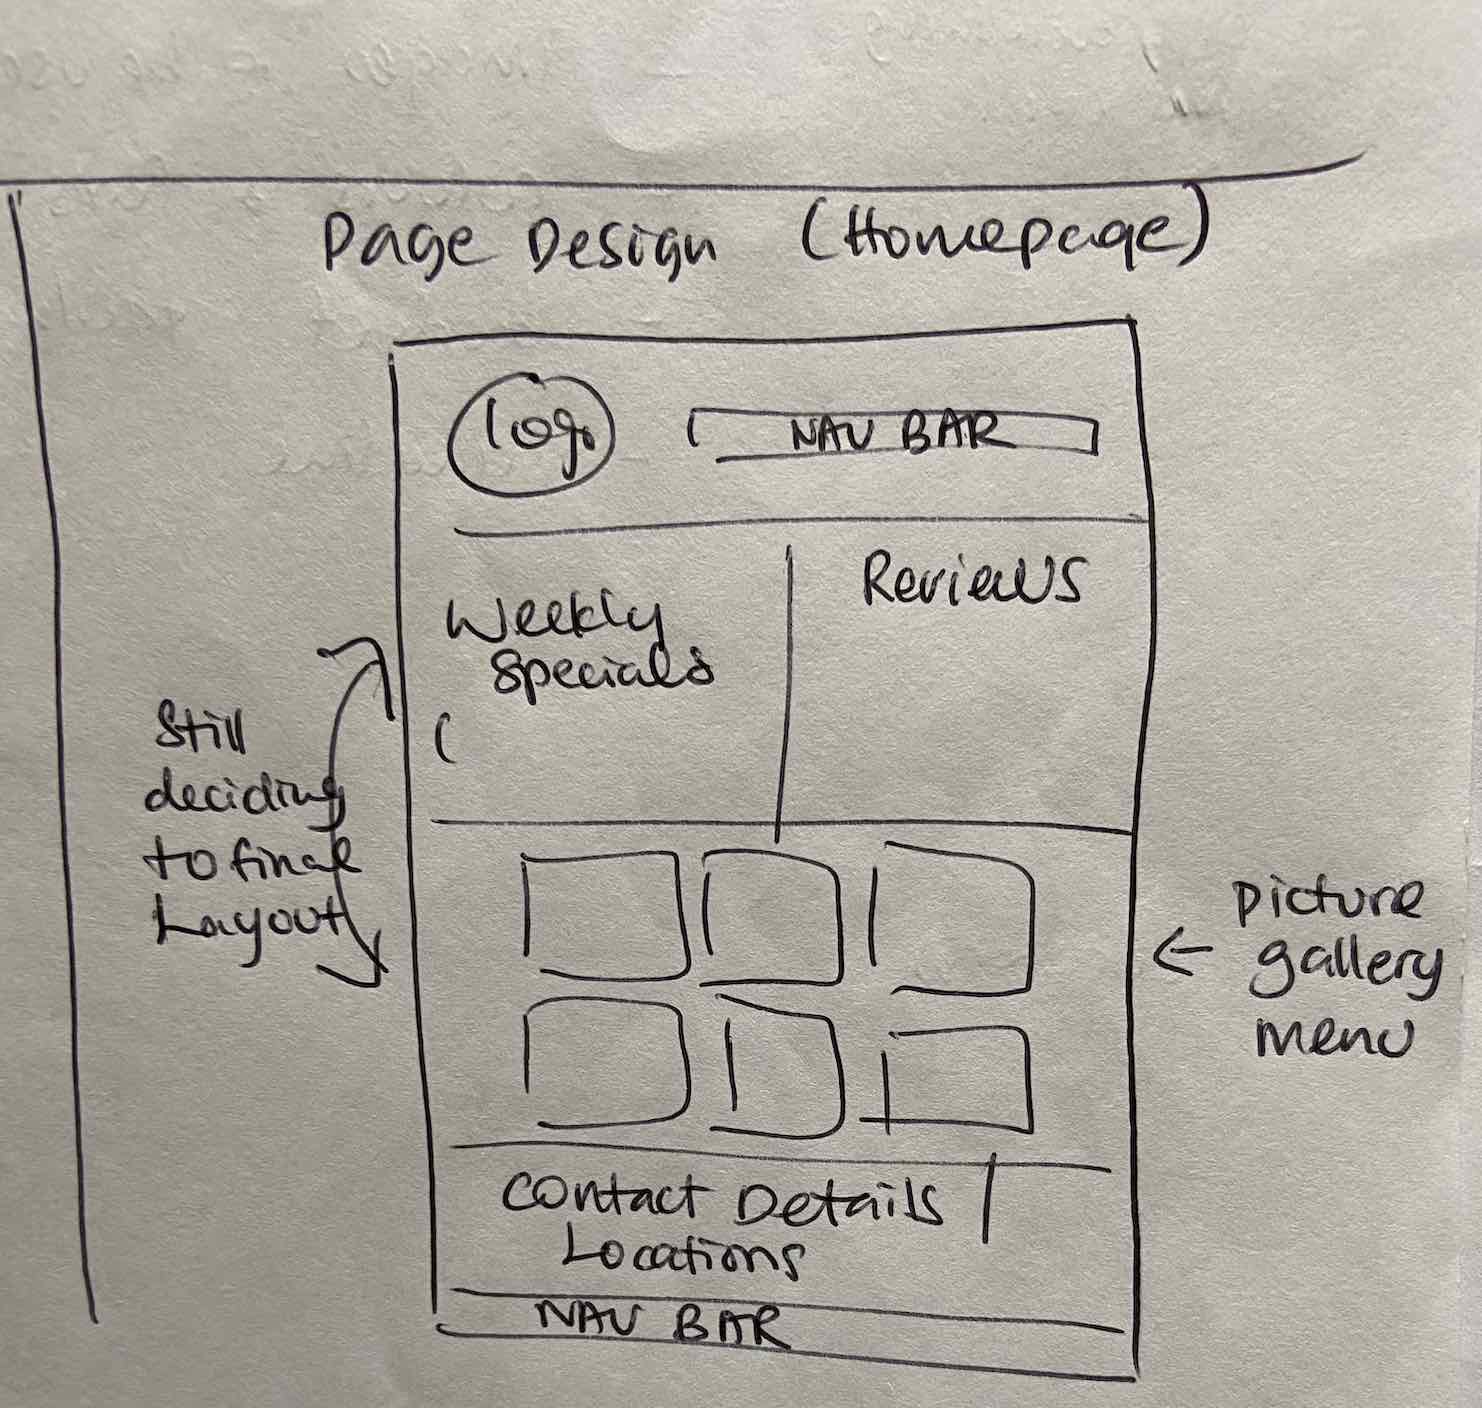 Page Design (Homepage)
logo
NAV BAR
Weekly
Specials
Reviews
Still
deciding
to final
Layout
picture
gallery
menu
Contact Details
Locations
NAV BAR